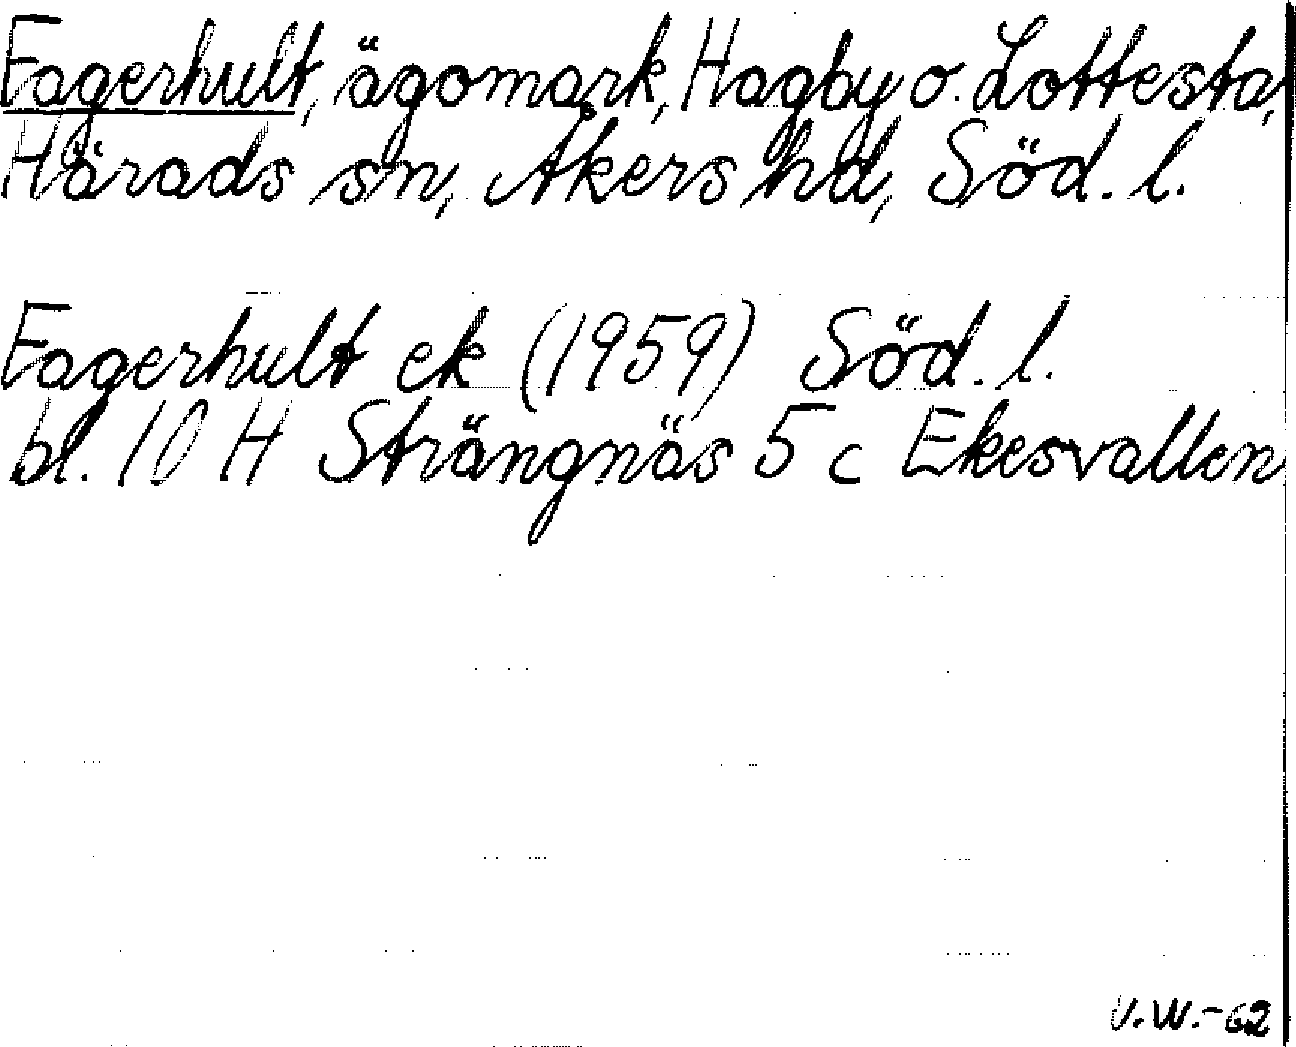 Fagerhult, ägomark, Hagby o. Lottesta,
Härads sn, Åkers hd, Söd. l.
Fagerhult ek (1959) Söd. l.
bl. 10 H Strängnäs 5 c Ekesvallen
V.W.-62